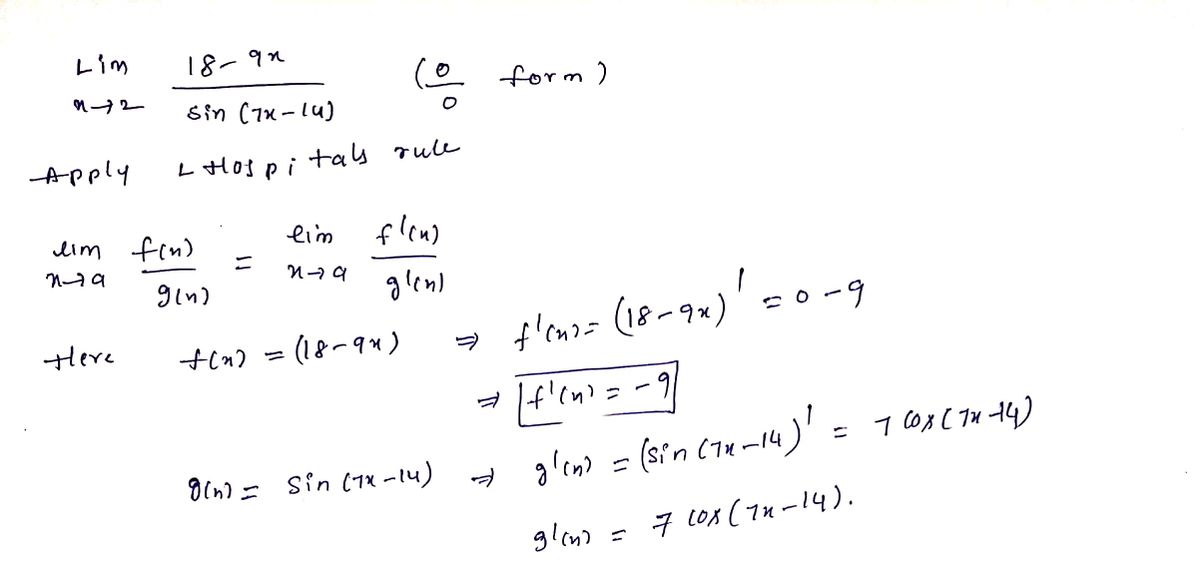 Lim 18-9x (0 form)
x→2 sin (7x-14) 0
Apply L Hospitals rule
lim f(x) = lim f'(x)
x→a g(x) x→a g'(x)
Here f(x) = (18-9x) ⇒ f'(x) = (18-9x)' = 0-9
⇒ f'(x) = -9
g(x) = Sin (7x-14) ⇒ g'(x) = (sin (7x-14)' = 7 cos(7x-14)
g'(x) = 7 cos(7x-14).